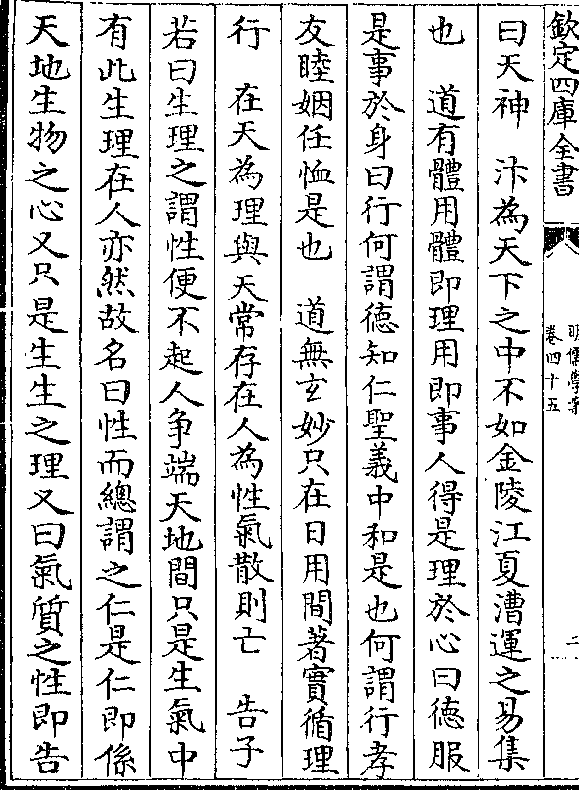 欽定四庫全書
明儒學案
卷四十五
二
曰天神　汴為天下之中不如金陵江夏漕運之易集
也　道有體用體即理用即事人得是理於心曰德服
是事於身曰行何謂德知仁聖義中和是也何謂行孝
友睦姻任恤是也　道無玄妙只在日用間著實循理
行　在天為理與天常存在人為性氣散則亡　告子
若曰生理之謂性便不起人爭端天地間只是生氣中
有此生理在人亦然故名曰性而總謂之仁是仁即係
天地生物之心又只是生生之理又曰氣質之性即告